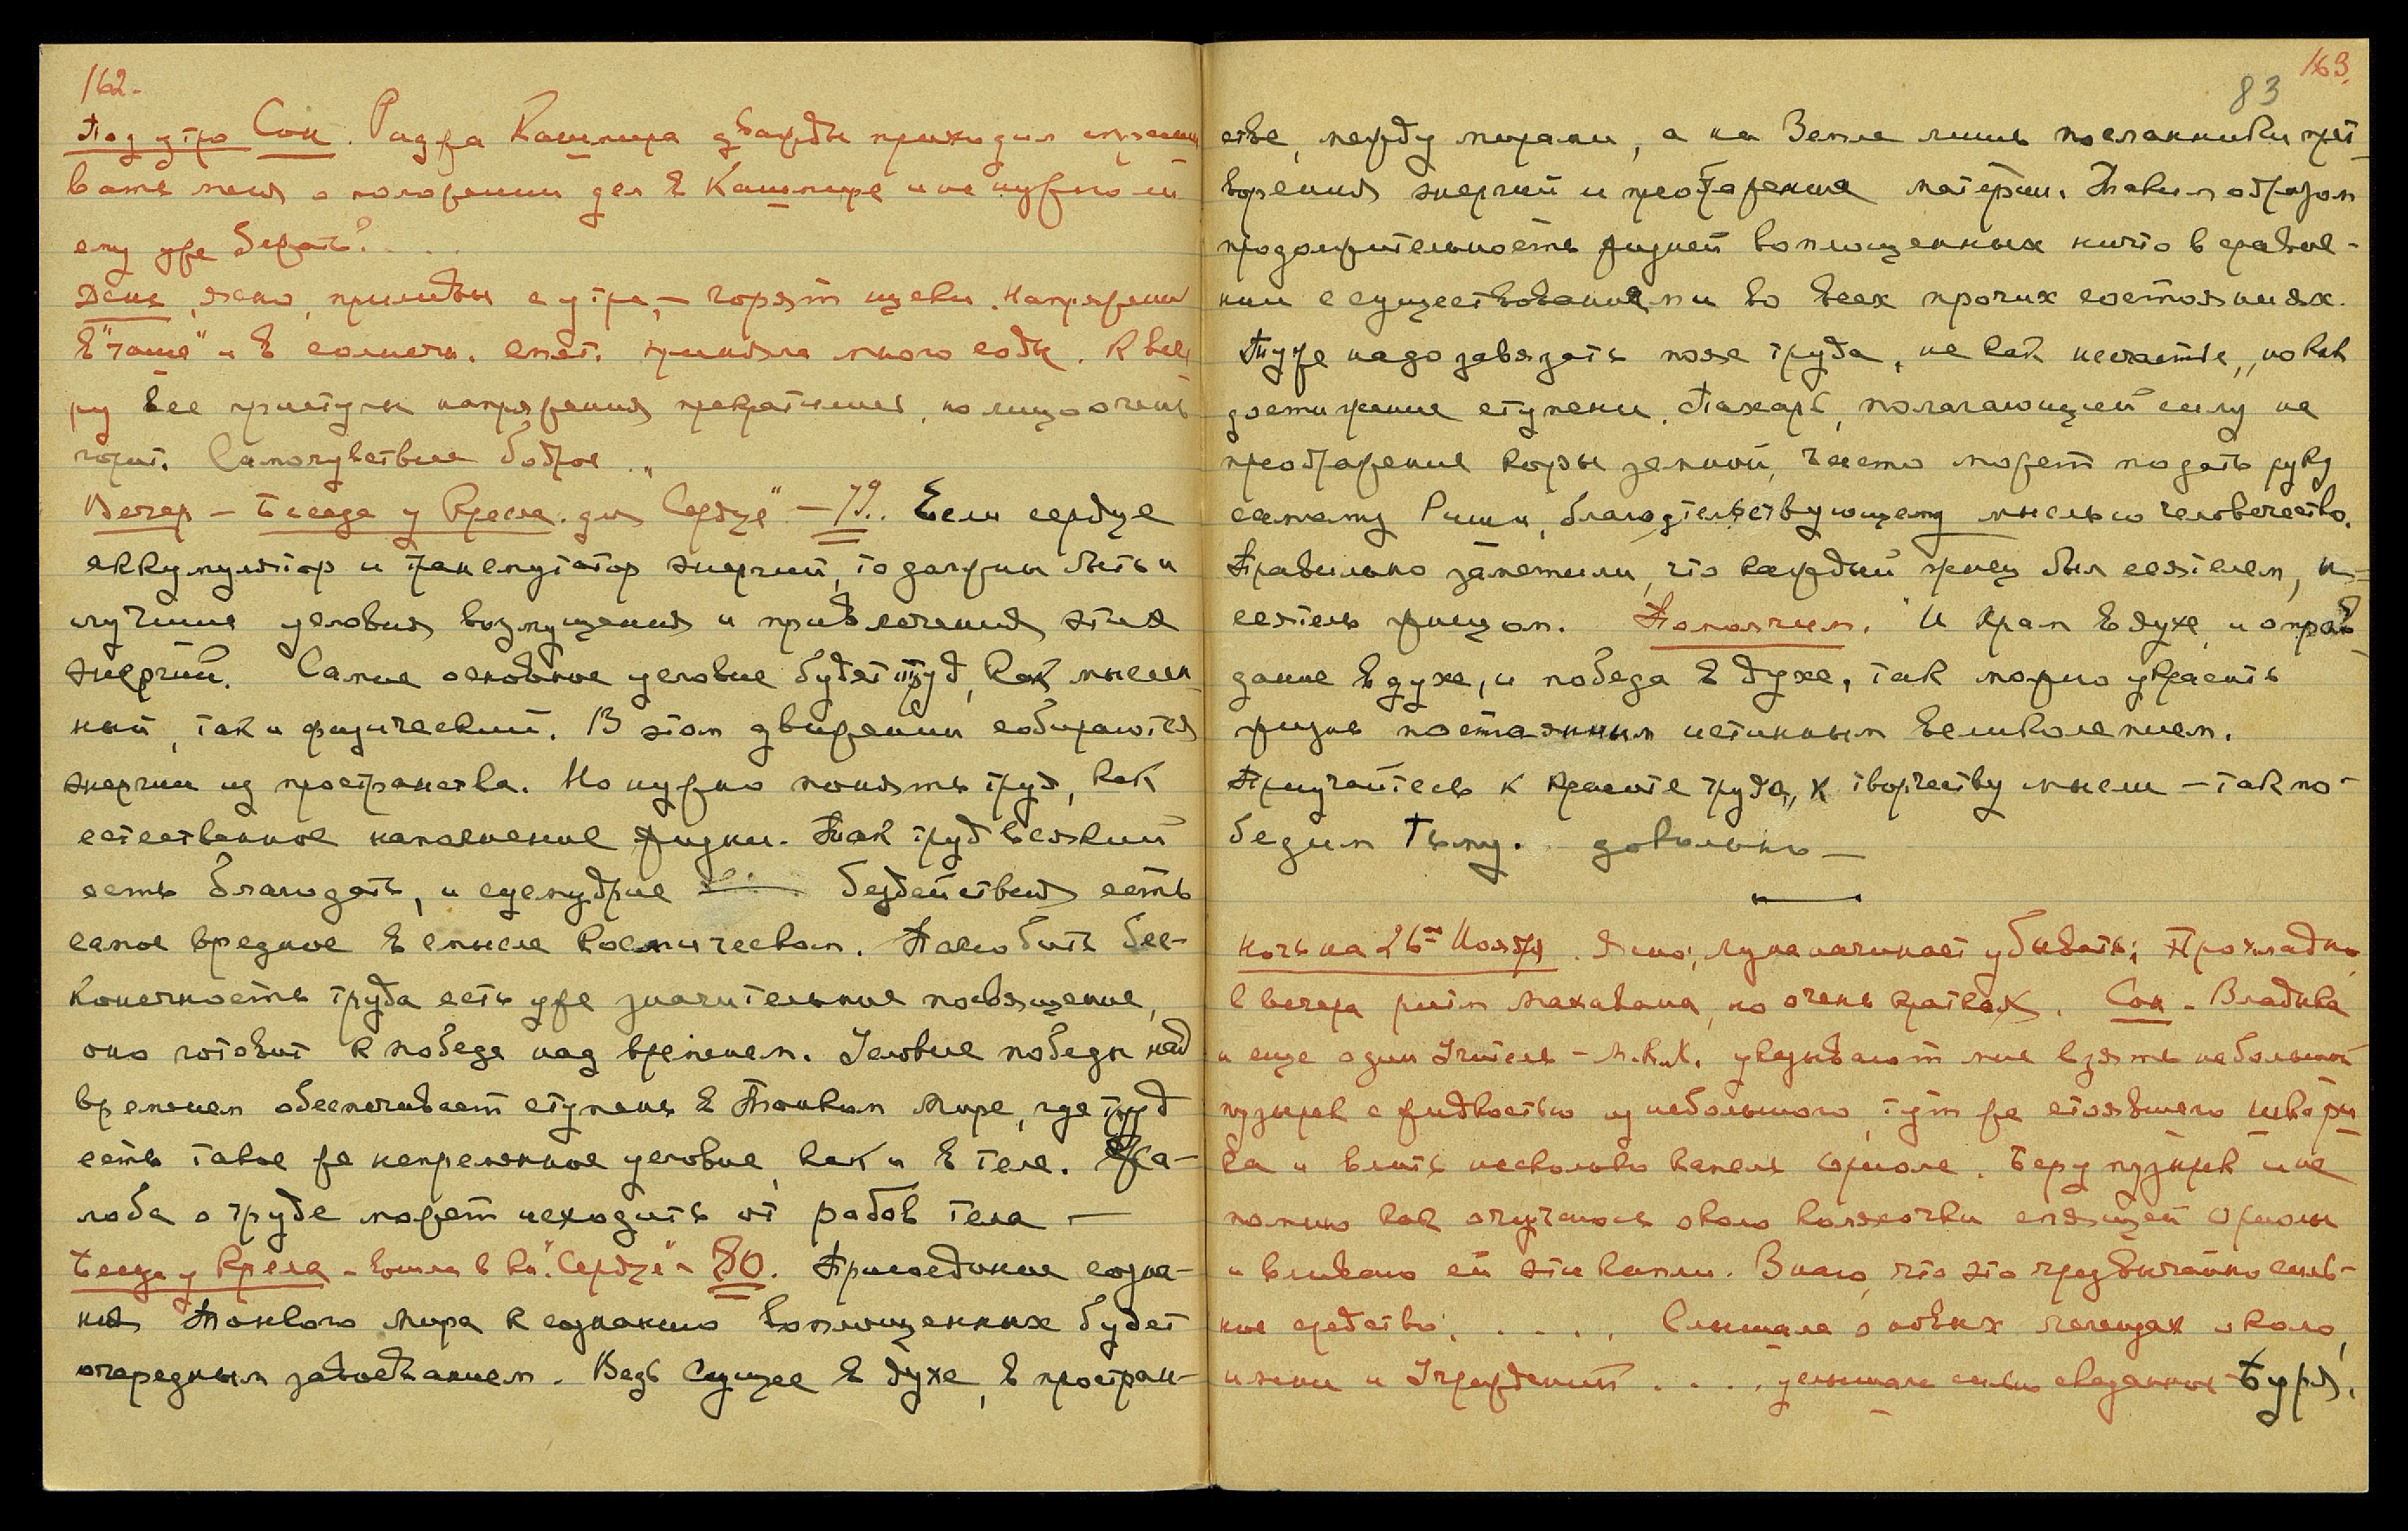 162.
Под утро Сон. Раджа Кашмира дважды приходил спраши
вать меня о положении дел в Кашмире и не нужно ли
ему уже бежать? . . .
День, ясно, приливы с утра, – горят щеки. Напряжение
в "чаше" и в солнечн. сплет. приняла много соды. К вече
ру все приступы напряжения прекратились, но лицо очень
горит. Самочувствие бодрое . „
Вечер – Беседа у Кресла. для "Сердце" – 79. Если сердце
аккумулятор и трансмутатор энергий, то должны быть и
лучшие условия возмущения и привлечения этих
энергий. Самое основное условие будет труд, как мыслен
ный, так и физический. В этом движении собираются
энергии из пространства. Но нужно понять труд, как
естественное наполнение жизни. Так труд всякий
есть благодать, и суемудрие бездействия есть
самое вредное в смысле космическом. Полюбить бес-
конечность труда есть уже значительное посвящение,
оно готовит к победе над временем. Условие победы над
временем обеспечивает ступень в Тонком Мире, где труд
есть такое же непременное условие, как и в теле. Жа-
лоба о труде может исходить от рабов тела –
Беседа у Кресла – вошла в кн. "Сердце" – 80. Присоединение созна-
ния Тонкого Мира к сознанию воплощенных будет
очередным завоеванием. Ведь Сущее в духе, в простран-
163.
83
стве, между мирами, а на Земле лишь посланники прет-
ворения энергий и преображения материи. Таким образом
продолжительность жизней воплощенных ничто в сравне-
нии с существованиями во всех прочих состояниях.
Туже надо завязать пояс труда, не как несчастье, но как
достижение ступени. Пахарь, полагающий силу на
преображение коры земной, часто может подать руку
самому Риши, благодетельствующему мыслью человечество.
Правильно заметили, что каждый жнец был сеятелем, и
сеятель жнецом. Помолчим. И храм в духе, и оправ
дание в духе, и победа в духе, так можно украсить
жизнь постоянным истинным великолепием.
Приучайтесь к красоте труда, к творчеству мысли – так по-
бедим тьму. довольно –
Ночь на 26ое Ноября. Ясно, луна начинает убывать; Прохладно,
с вечера ритм Махавана, но очень краткая. Сон – Владыка
и еще один Учитель – М.К.Х. указывают мне взять небольшой
пузырек с жидкостью из небольшого, тут же стоявшего шкапчи
ка и влить несколько капель Ориоле. Беру пузырек и не
помню как очутилась около колясочки спящей Ориолы
и вливаю ей эти капли. Знаю, что это чрезвычайно силь-
ное средство. . . . . . Слышала о новых помещениях около,
имени и Учреждений . . . . услышала сильно сказанное Буря.